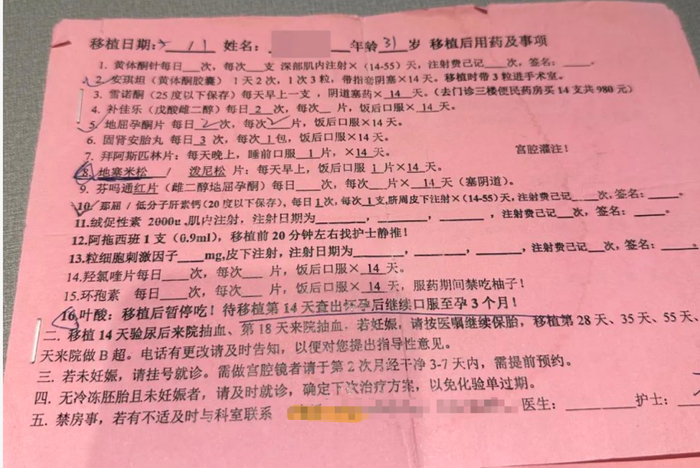 移植日期: 5.11 姓名: 年龄31岁 移植后用药及事项
1. 黄体酮针每日__次，每次__支 深部肌内注射×(14-55)天，注射费己记__次，签名：____。
2. 安琪坦（黄体酮胶囊）1天2次，1次3粒，带指套阴塞×14天。移植时带3粒进手术室。
3. 雪诺酮（25度以下保存）每天早上一支，阴道塞药×14天。（去门诊三楼便民药房买14支共980元）
4. 补佳乐（戊酸雌二醇）每日2次，每次__片，饭后口服×14天。
5. 地屈孕酮片 每日2次，每次2片，饭后口服×14天。
6. 固肾安胎丸 每日3次，每次1包，饭后口服×14天。
7. 拜阿斯匹林片：每天晚上，睡前口服1片，×14天。 宫腔灌注！
8. 地塞米松 / 泼尼松 片：每天早上，饭后口服1片×14天。
9. 芬吗通红片（雌二醇地屈孕酮）每日__次，每次__片×14天（塞阴道）。
10. 那屈 / 低分子肝素钙(20度以下保存)，每日1次，每次1支,脐周皮下注射×(14-55)天，注射费己记__次，签名：____。
11. 绒促性素 2000u,肌内注射，注射日期为____，____，____，注射费己记__次，签名：____。
12. 阿拖西班1支（0.9ml），移植前20分钟左右找护士静推！
13. 粒细胞刺激因子____mg,皮下注射，注射日期为____，____，____，注射费己记__次，签名：____。
14. 羟氯喹片每日__次，每次__片，饭后口服×14天。
15. 环孢素 每日__次，每次__片，饭后口服×14天，服药期间禁吃柚子！
16. 叶酸：移植后暂停吃！待移植第14天查出怀孕后继续口服至孕3个月！
二. 移植14天验尿后来院抽血、第18天来院抽血，若妊娠，请按医嘱继续保胎，移植第28天、35天、55天、
天来院做B超。电话有更改请及时告知，以便对您提出指导性意见。
三. 若未妊娠，请挂号就诊。需做宫腔镜者请于第2次月经干净3-7天内，需提前预约。
四. 无冷冻胚胎且未妊娠者，请及时就诊，确定下次治疗方案，以免化验单过期。
五. 禁房事，若有不适及时与科室联系 医生：____ 护士：